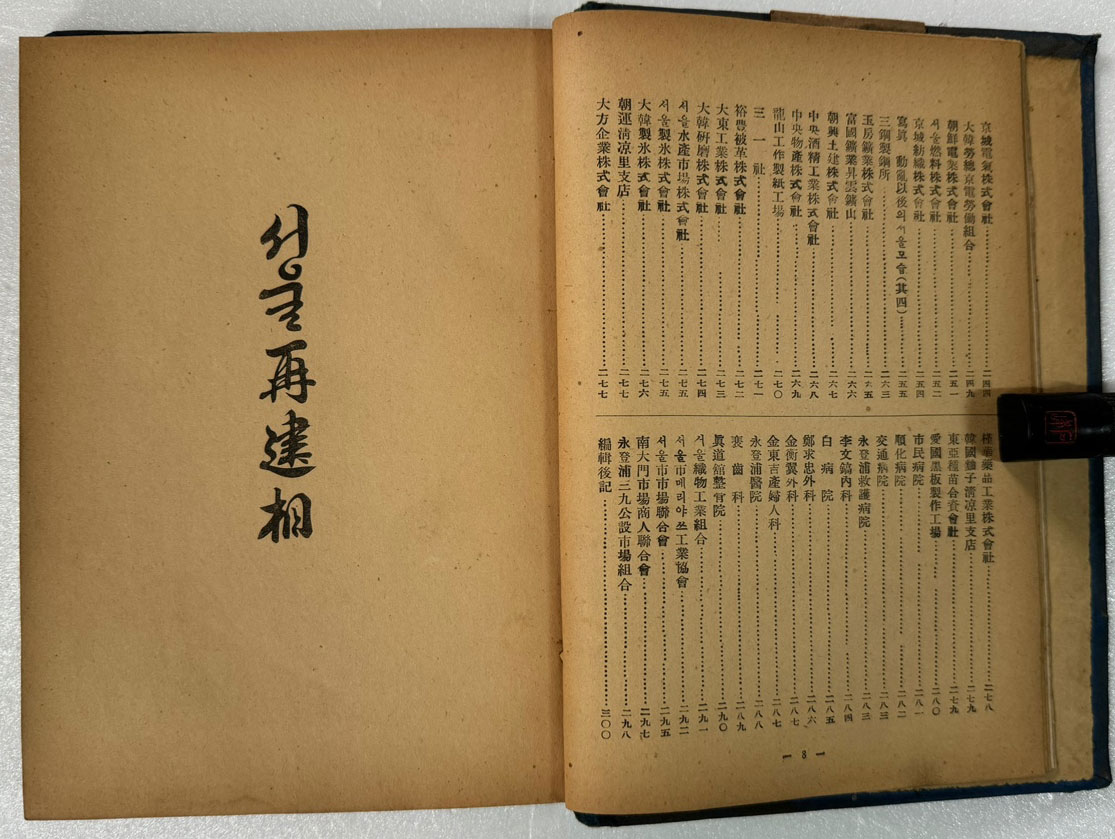 京城電氣株式會社……二四四
大韓勞總京電勞働組合……二四九
朝鮮電業株式會社……二五一
서울燃料株式會社……二五二
京城紡織株式會社……二五四
寫眞 動亂以後의서울모습(其四)……二五五
三鋼製鋼所……二六三
玉房鑛業株式會社……二六五
富國鑛業昇雲鑛山……二六六
朝興土建株式會社……二六七
中央酒精工業株式會社……二六八
中央物產株式會社……二六九
龍山工作製紙工場……二七〇
三一社……二七一
裕豐被革株式會社……二七二
大東工業株式會社……二七三
大韓硏磨株式會社……二七四
서울水產市場株式會社……二七五
서울製氷株式會社……二七五
大韓製氷株式會社……二七六
朝運淸凉里支店……二七七
大方企業株式會社……二七七
藥品工業株式會社……二七八
韓國 子淸凉里支店……二七九
東亞種苗合資會社……二七九
愛國黑板製作工場……二八〇
市民病院……二八一
順化病院……二八二
交通病院……二八三
永登浦救護病院……二八三
李文鎬內科……二八四
白病院……二八五
鄭求忠外科……二八六
金衡翼外科……二八七
金東吉產婦人科……二八七
永登浦醫院……二八八
裵齒科……二八九
眞道舘整骨院……二九〇
서울織物工業組合……二九一
서울市메리야쓰工業協會……二九二
서울市市場聯合會……二九五
南大門市場商人聯合會……二九七
永登浦三九公設市場組合……二九八
編輯後記……三〇〇
— 8 —
서울再建相